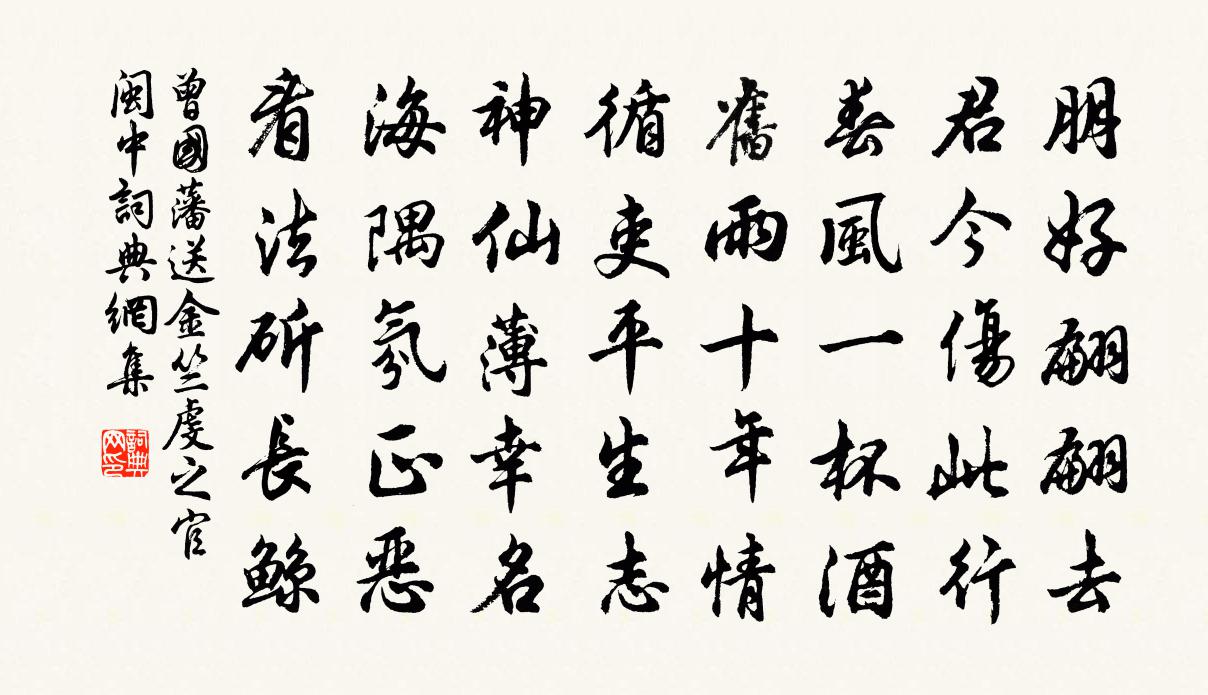 朋好翩翩去
君今傷此行
春風一杯酒
舊雨十年情
循吏平生志
神仙薄幸名
海隅氛正惡
看法斫長鯨
曾國藩送金竺虔之官
閩中詞典網集
詞典網印